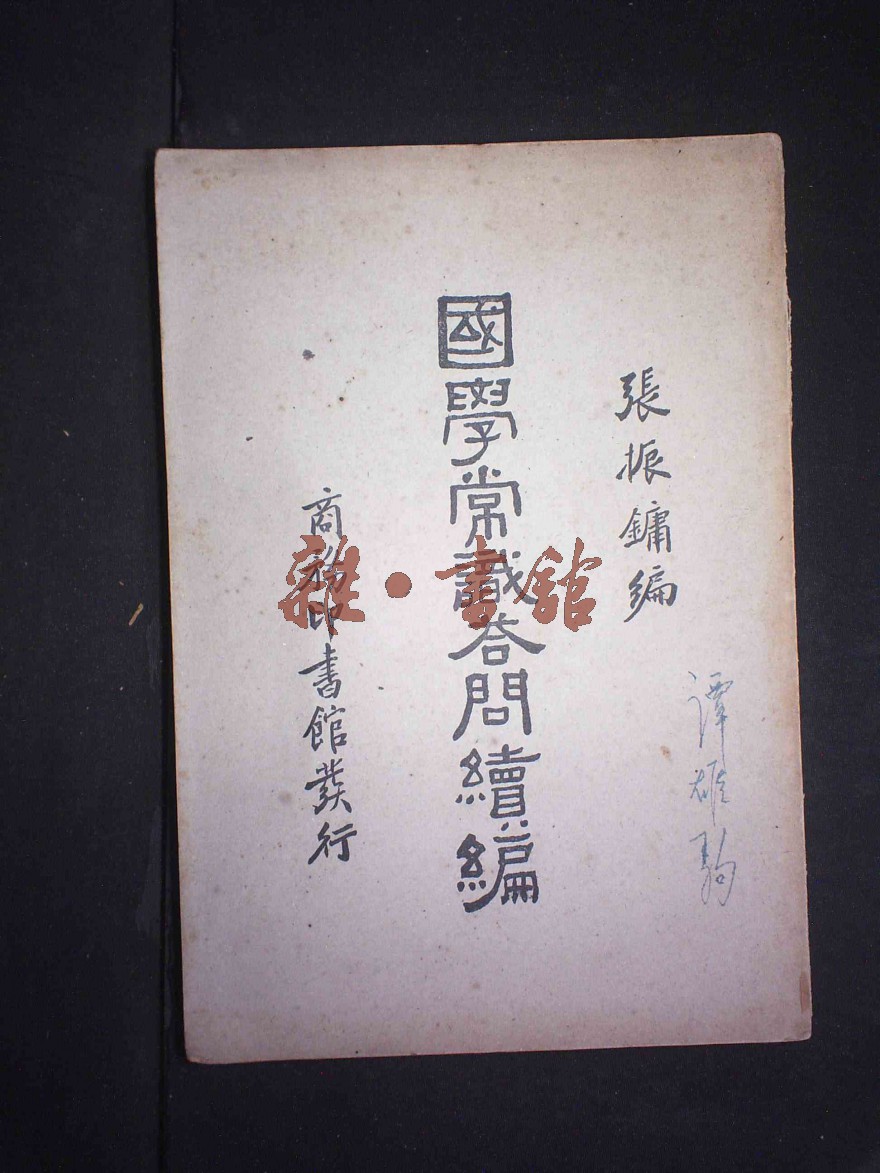 張振鏞編
國學常識答問續編
商務印書館發行
譚雄
雜·書館